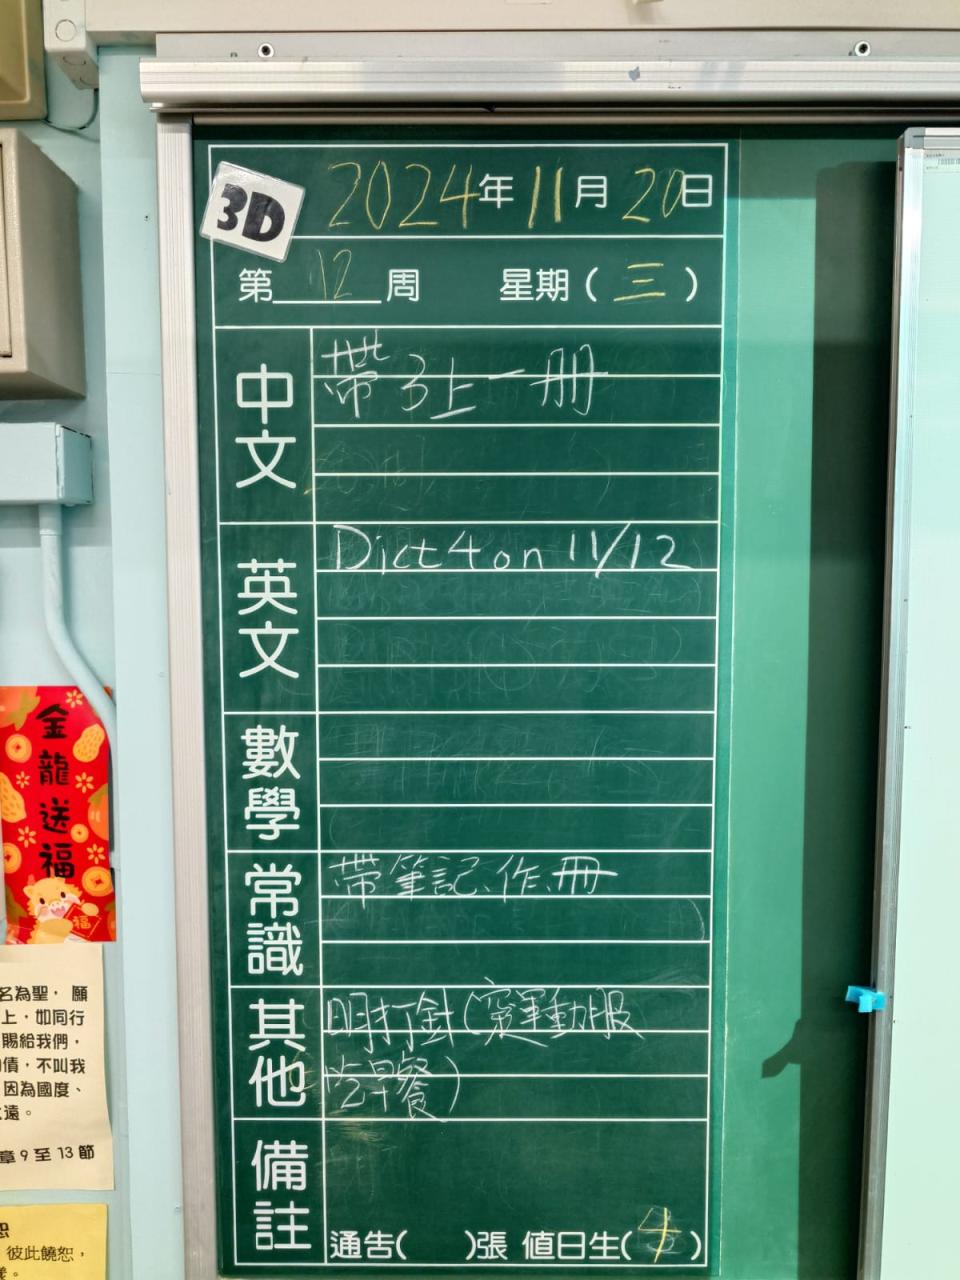 3D
2024年11月20日
第12周 星期(三)
中文
帶3上一冊
英文
Dict 4 on 11/12
數學
常識
帶筆記、作、冊
其他
明打針(穿運動服
吃早餐)
備註
通告( )張 值日生( )
金龍送福
福
名為聖，願
上，如同行
賜給我們，
債，不叫我
因為國度、
遠。
章9至13節
恕
彼此饒恕，